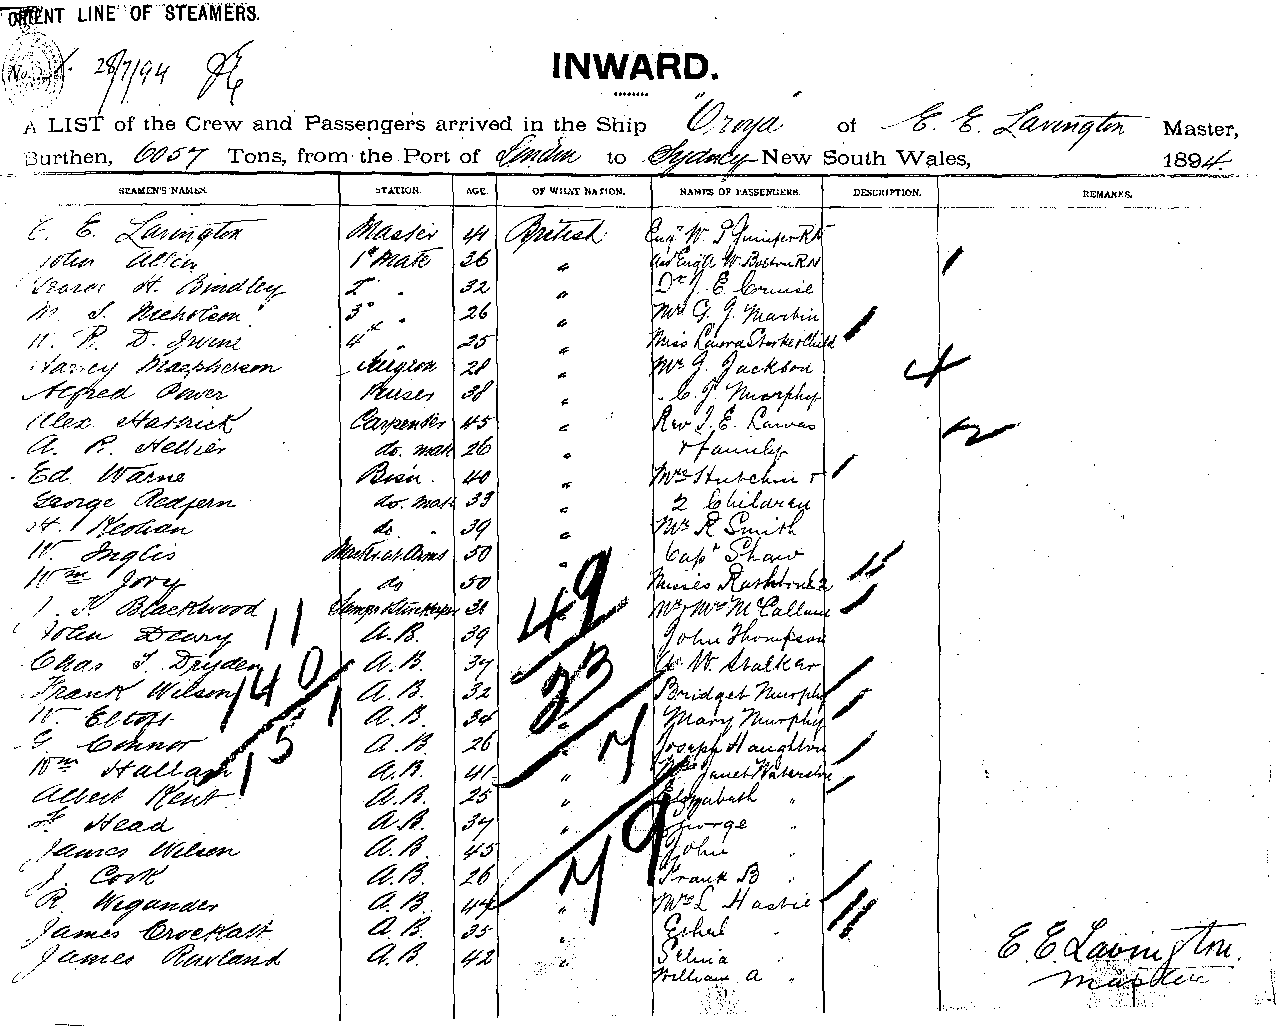 ORIENT LINE OF STEAMERS.
28/7/94
INWARD.
A LIST of the Crew and Passengers arrived in the Ship "Oroya" of E. E. Lavington Master,
Burthen, 6057 Tons, from the Port of London to Sydney New South Wales, 1894.
SEAMEN'S NAMES. STATION. AGE. OF WHAT NATION. NAMES OF PASSENGERS. DESCRIPTION. REMARKS.
E. E. Lavington Master 41 British Engr W. P. RN
John 1st Mate 36 " W. RN
George H. Bindley 2nd " 32 " Dr J. E. Cruise
M. S. Nicholson 3rd " 26 " Mr G. J. Martin
R. D. Irvine 4th " 25 " Miss Child
Harvey Macpherson Surgeon 28 " Mr J. Jackson
Alfred Power Purser 38 " " C. J. Murphy
Alex. Carpenter 45 " Rev J. E.
A. R. Hellier do. mate 26 " & family
Ed Warne Bosn. 40 " Mrs &
George Redfern do. mate 33 " 2 Children
do " 39 " Mr R Smith
W. Inglis Master at Arms 50 " Capt Shaw
Wm Jory do 50 Misses 2
Blackwood Lamps & Storekeeper Mr & Mrs McCallum
John Dewry A.B. 39 John Thompson
Chas T. Dryden A.B. 37 W. Stalker
Frank Wilson A.B. 32 Bridget Murphy
W. A.B. 34 " Mary Murphy
G. Connor A.B. 26 " Joseph Haughton
Wm Hallam A.B. 41 " Mrs Janet
Albert Kent A.B. 25 " Elizabeth "
F. Head A.B. 37 " George "
James Wilson A.B. 45 " John "
J. Cook A.B. 26 " Frank B "
R. Wegander A.B. 44 " Mrs L Hastie
James A.B. 35 " Ethel "
James A.B. 42 " Selina "
William A "
11
140
1
151
49
23
7
79
4
2
E. E. Lavington.
Master